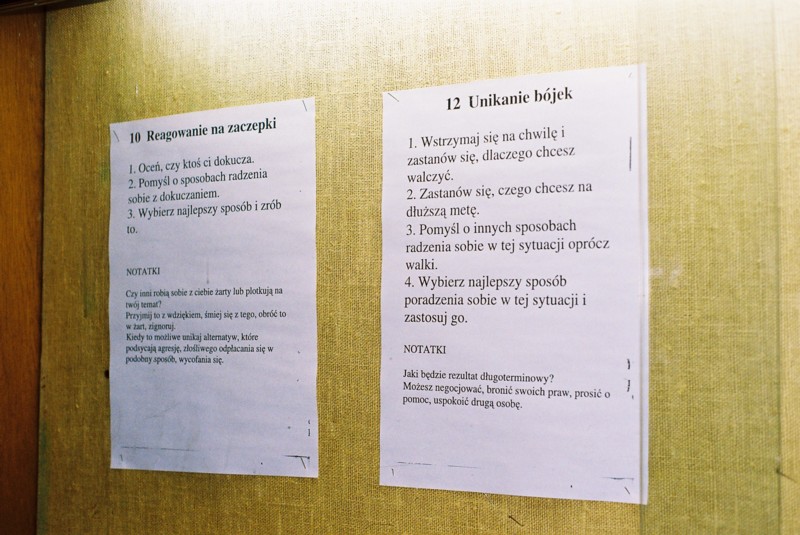 10 Reagowanie na zaczepki
1. Oceń, czy ktoś ci dokucza.
2. Pomyśl o sposobach radzenia
sobie z dokuczaniem.
3. Wybierz najlepszy sposób i zrób
to.
NOTATKI
Czy inni robią sobie z ciebie żarty lub plotkują na
twój temat?
Przyjmij to z wdziękiem, śmiej się z tego, obróć to
w żart, zignoruj.
Kiedy to możliwe unikaj alternatyw, które
podsycają agresję, złośliwego odpłacania się w
podobny sposób, wycofania się.
12 Unikanie bójek
1. Wstrzymaj się na chwilę i
zastanów się, dlaczego chcesz
walczyć.
2. Zastanów się, czego chcesz na
dłuższą metę.
3. Pomyśl o innych sposobach
radzenia sobie w tej sytuacji oprócz
walki.
4. Wybierz najlepszy sposób
poradzenia sobie w tej sytuacji i
zastosuj go.
NOTATKI
Jaki będzie rezultat długoterminowy?
Możesz negocjować, bronić swoich praw, prosić o
pomoc, uspokoić drugą osobę.